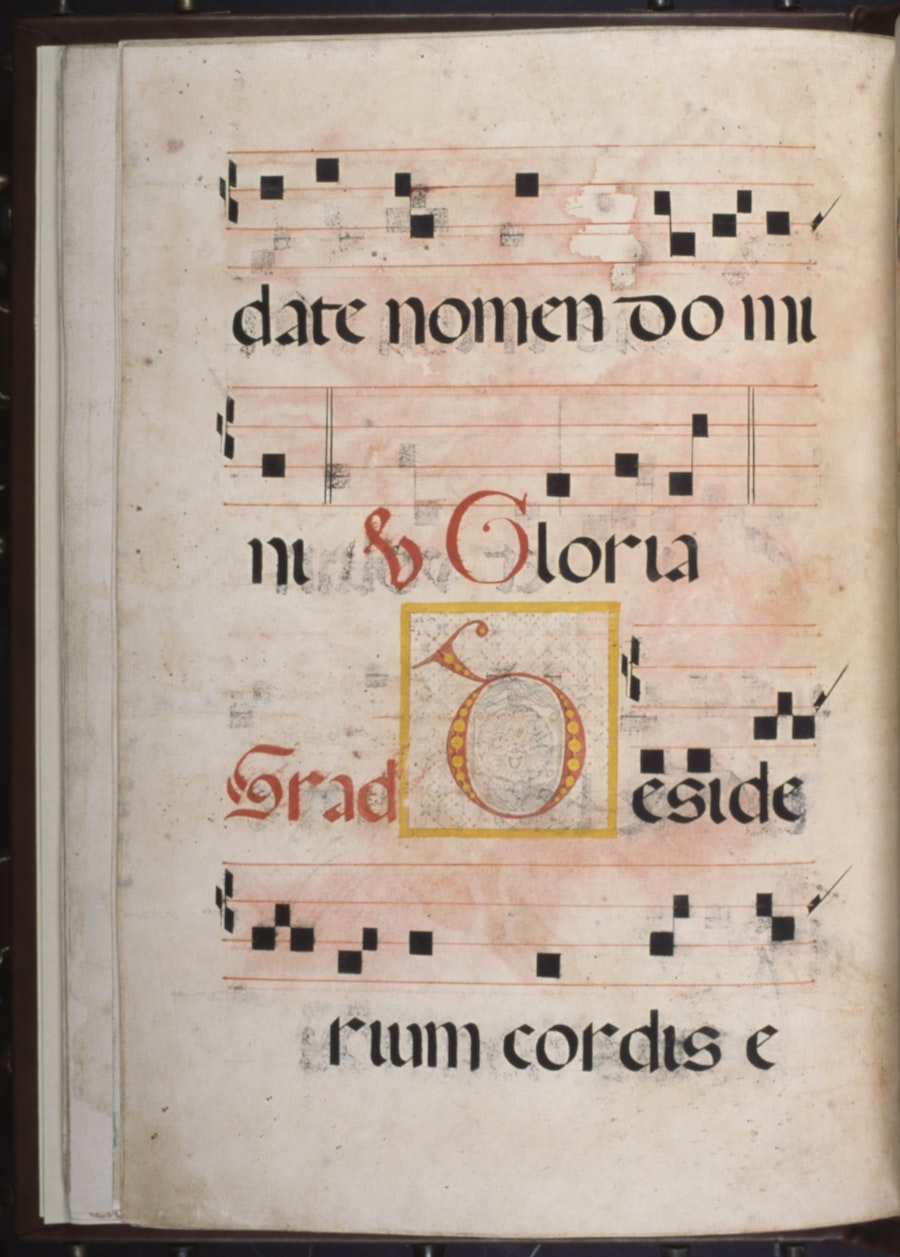 date nomen do mi
ni ℣ Gloria
Grad Deside
rium cordis e